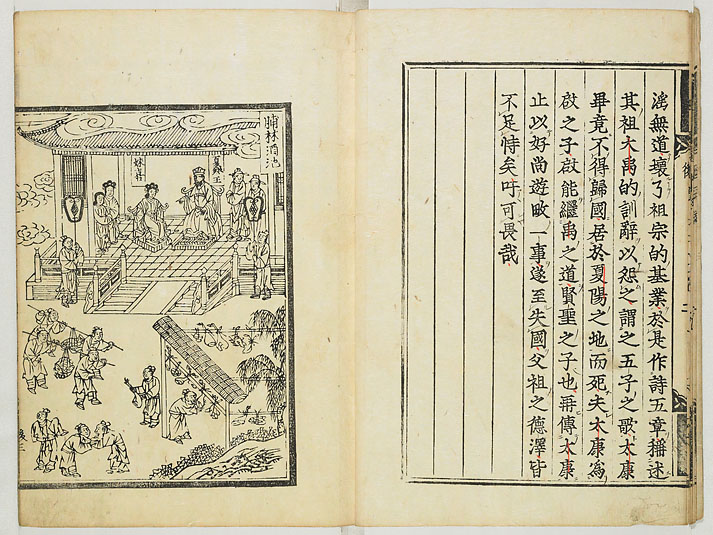 滛無道壞了祖宗的基業於是作詩五章稱述
其祖大禹的訓辭以怨之謂之五子之歌太康
畢竟不得歸國居於夏陽之地而死夫太康為
啟之子啟能繼禹之道賢聖之子也再傳太康
止以好尚遊畋一事遂至失國父祖之德澤皆
不足恃矣吁可畏哉
脯林酒池
夏桀王
妹喜